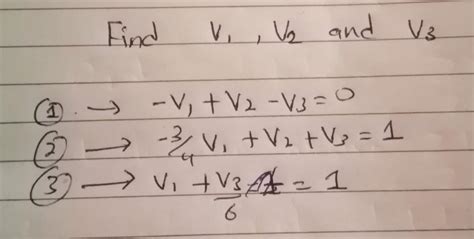 Find V₁, V₂ and V₃
① → -V₁ + V₂ - V₃ = 0
② → -3/4 V₁ + V₂ + V₃ = 1
③ → V₁ + V₃/6 = 1